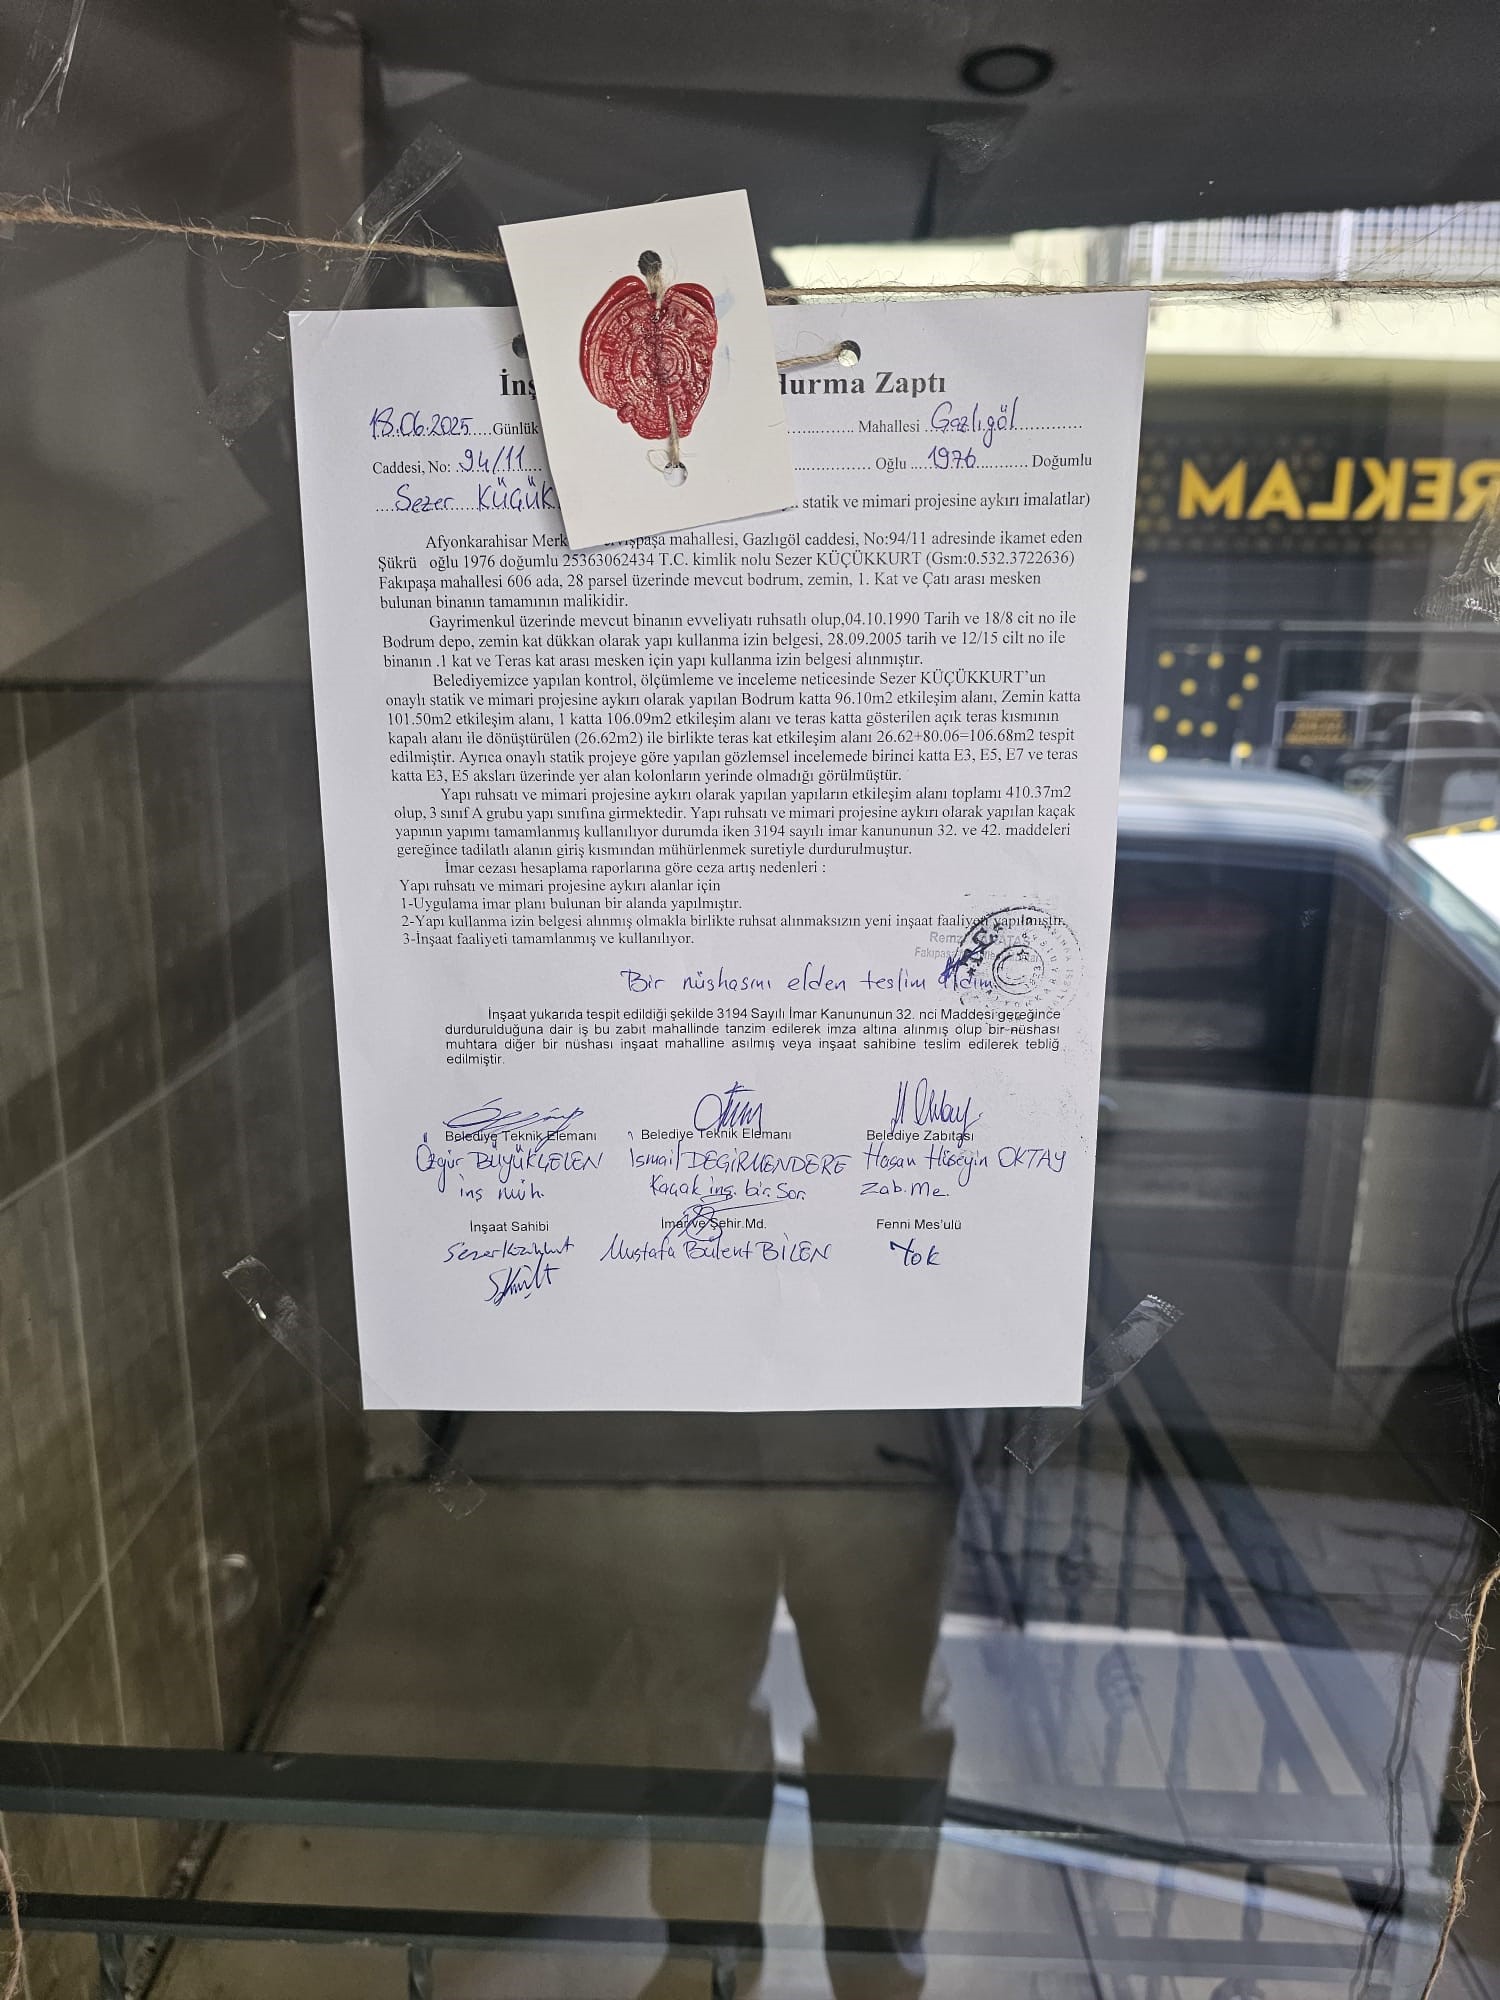 İnş durma Zaptı
18.06.2025 Günlük Mahallesi Gazlıgöl
Caddesi, No: 94/11 Oğlu 1976 Doğumlu
Sezer KÜÇÜK statik ve mimari projesine aykırı imalatlar)
Afyonkarahisar Merk mahallesi, Gazlıgöl caddesi, No:94/11 adresinde ikamet eden
Şükrü oğlu 1976 doğumlu 25363062434 T.C. kimlik nolu Sezer KÜÇÜKKURT (Gsm:0.532.3722636)
Fakıpaşa mahallesi 606 ada, 28 parsel üzerinde mevcut bodrum, zemin, 1. Kat ve Çatı arası mesken
bulunan binanın tamamının malikidir.
Gayrimenkul üzerinde mevcut binanın evveliyatı ruhsatlı olup,04.10.1990 Tarih ve 18/8 cit no ile
Bodrum depo, zemin kat dükkan olarak yapı kullanma izin belgesi, 28.09.2005 tarih ve 12/15 cilt no ile
binanın .1 kat ve Teras kat arası mesken için yapı kullanma izin belgesi alınmıştır.
Belediyemizce yapılan kontrol, ölçümleme ve inceleme neticesinde Sezer KÜÇÜKKURT'un
onaylı statik ve mimari projesine aykırı olarak yapılan Bodrum katta 96.10m2 etkileşim alanı, Zemin katta
101.50m2 etkileşim alanı, 1 katta 106.09m2 etkileşim alanı ve teras katta gösterilen açık teras kısmının
kapalı alanı ile dönüştürülen (26.62m2) ile birlikte teras kat etkileşim alanı 26.62+80.06=106.68m2 tespit
edilmiştir. Ayrıca onaylı statik projeye göre yapılan gözlemsel incelemede birinci katta E3, E5, E7 ve teras
katta E3, E5 aksları üzerinde yer alan kolonların yerinde olmadığı görülmüştür.
Yapı ruhsatı ve mimari projesine aykırı olarak yapılan yapıların etkileşim alanı toplamı 410.37m2
olup, 3 sınıf A grubu yapı sınıfına girmektedir. Yapı ruhsatı ve mimari projesine aykırı olarak yapılan kaçak
yapının yapımı tamamlanmış kullanılıyor durumda iken 3194 sayılı imar kanununun 32. ve 42. maddeleri
gereğince tadilatlı alanın giriş kısmından mühürlenmek suretiyle durdurulmuştur.
İmar cezası hesaplama raporlarına göre ceza artış nedenleri :
Yapı ruhsatı ve mimari projesine aykırı alanlar için
1-Uygulama imar planı bulunan bir alanda yapılmıştır.
2-Yapı kullanma izin belgesi alınmış olmakla birlikte ruhsat alınmaksızın yeni inşaat faaliyeti yapılmıştır.
3-İnşaat faaliyeti tamamlanmış ve kullanılıyor.
Bir nüshasını elden teslim aldım.
İnşaat yukarıda tespit edildiği şekilde 3194 Sayılı İmar Kanununun 32. nci Maddesi gereğince
durdurulduğuna dair iş bu zabıt mahallinde tanzim edilerek imza altına alınmış olup bir nüshası
muhtara diğer bir nüshası inşaat mahalline asılmış veya inşaat sahibine teslim edilerek tebliğ
edilmiştir.
Belediye Teknik Elemanı Belediye Teknik Elemanı Belediye Zabıtası
Özgür BÜYÜKÇELEN İsmail DEĞİRMENDERE Hasan Hüseyin OKTAY
inş müh. Kaçak inş. bir. Sor. Zab. Me.
İnşaat Sahibi İmar ve Şehir.Md. Fenni Mes'ulü
Sezer Küçükkurt Mustafa Bülent BİLEN Yok
REKLAM